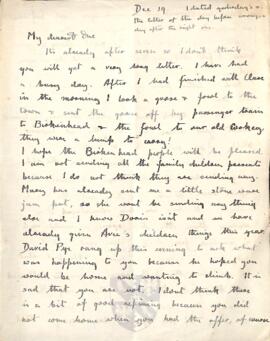 Dec 19 I dated yesterday's &
the letter of the day before wrongly a
day after the right one.
My dearest Sue
It's already after seven so I don't think
you will get a very long letter. I have had
a busy day. After I had finished with Clare
in the morning I took a goose & fowl to the
town & sent the goose off by passenger train
to Birkenhead & the fowl to our old Cookey,
they were a bump to carry!
I hope the Birkenhead people will be pleased.
I am not sending all the family children presents
because I do not think they are sending any.
Mary has already sent me a little stone ware
jam pot, so she won't be sending any thing
else and I know Dossie isn't and we have
already given Avie's children things this year.
David Pye rang up this evening to ask what
was happening to you because he hoped you
would be home and wanting to climb. It is
sad that you are not. I don't think there
is a bit of good repining because you did
not come home when you had the offer, of course